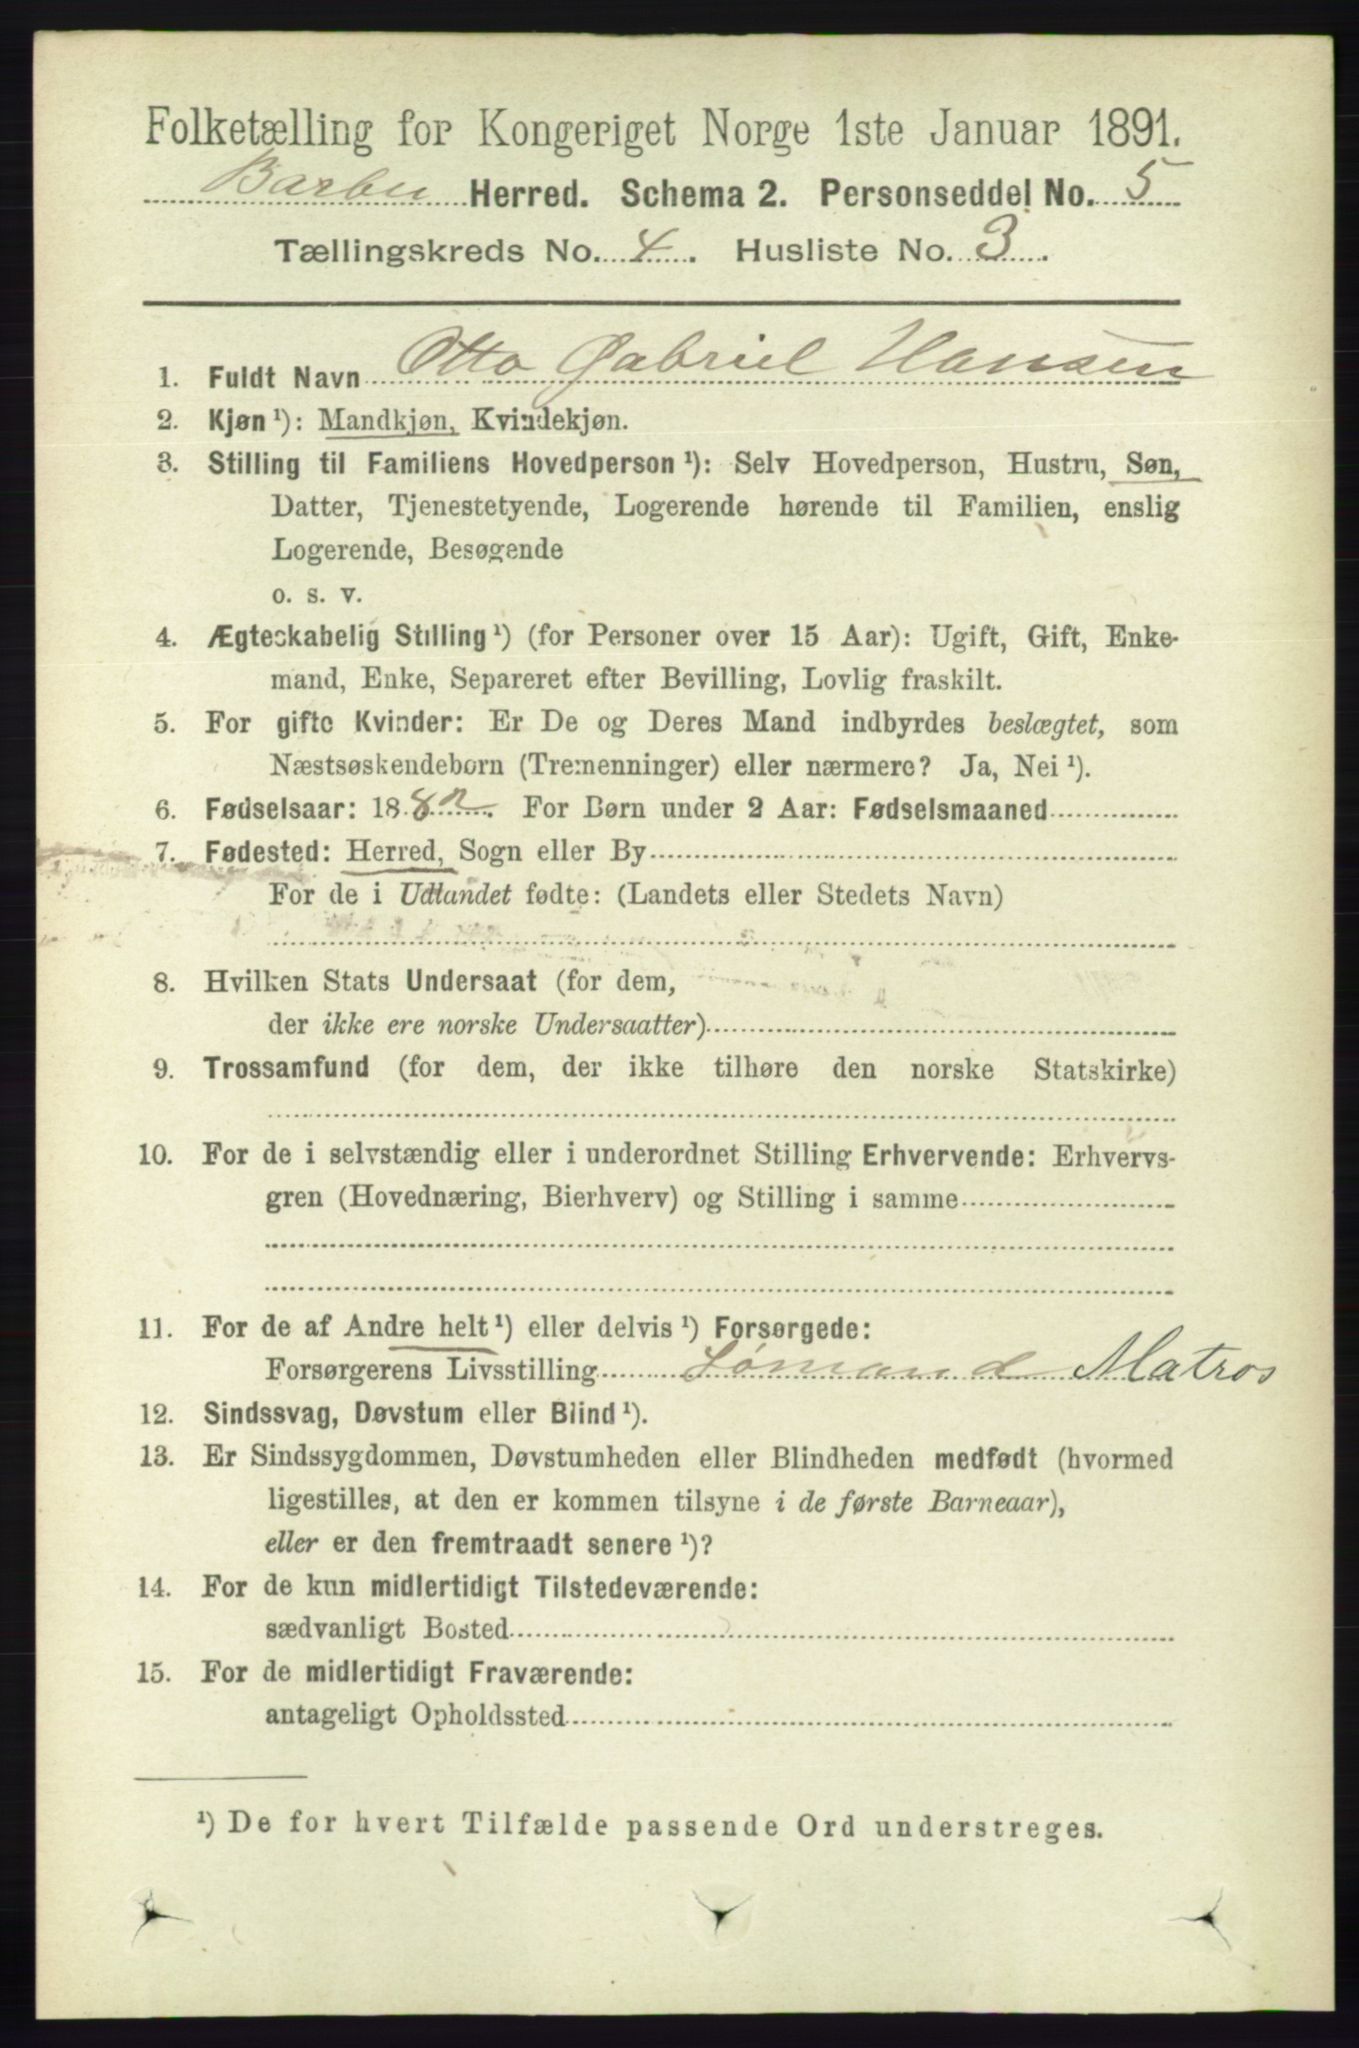 Folketælling for Kongeriget Norge 1ste Januar 1891.
Barbu Herred. Schema 2. Personseddel No. 5
Tællingskreds No. 4. Husliste No. 3.
1. Fuldt Navn Otto Gabriel Hansen
2. Kjøn¹): Mandkjøn, Kvindekjøn.
3. Stilling til Familiens Hovedperson¹): Selv Hovedperson, Hustru, Søn,
Datter, Tjenestetyende, Logerende hørende til Familien, enslig
Logerende, Besøgende
o. s. v.
4. Ægteskabelig Stilling¹) (for Personer over 15 Aar): Ugift, Gift, Enke-
mand, Enke, Separeret efter Bevilling, Lovlig fraskilt.
5. For gifte Kvinder: Er De og Deres Mand indbyrdes beslægtet, som
Næstsøskendebørn (Tremenninger) eller nærmere? Ja, Nei¹).
6. Fødselsaar: 1882. For Børn under 2 Aar: Fødselsmaaned
7. Fødested: Herred, Sogn eller By
For de i Udlandet fødte: (Landets eller Stedets Navn)
8. Hvilken Stats Undersaat (for dem,
der ikke ere norske Undersaatter)
9. Trossamfund (for dem, der ikke tilhøre den norske Statskirke)
10. For de i selvstændig eller i underordnet Stilling Erhvervende: Erhvervs-
gren (Hovednæring, Bierhverv) og Stilling i samme
11. For de af Andre helt¹) eller delvis¹) Forsørgede:
Forsørgerens Livsstilling Sømand Matros
12. Sindssvag, Døvstum eller Blind¹).
13. Er Sindssygdommen, Døvstumheden eller Blindheden medfødt (hvormed
ligestilles, at den er kommen tilsyne i de første Barneaar),
eller er den fremtraadt senere¹)?
14. For de kun midlertidigt Tilstedeværende:
sædvanligt Bosted
15. For de midlertidigt Fraværende:
antageligt Opholdssted
¹) De for hvert Tilfælde passende Ord understreges.